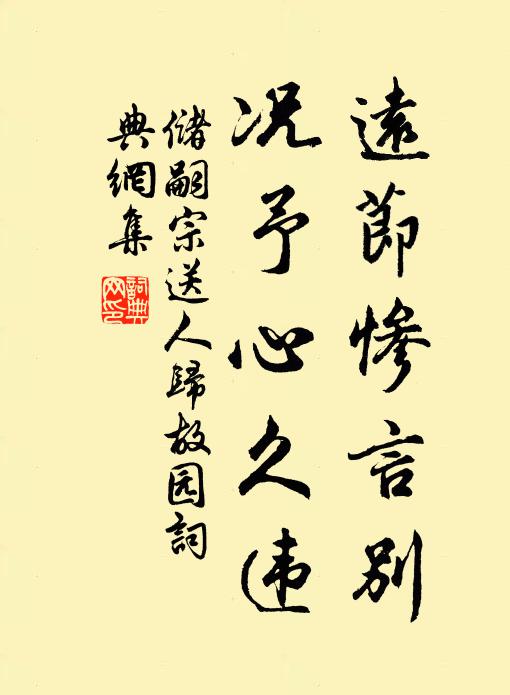 遠節慘言別
况予心久违
儲嗣宗送人歸故园詞
典網集
詞典
网印